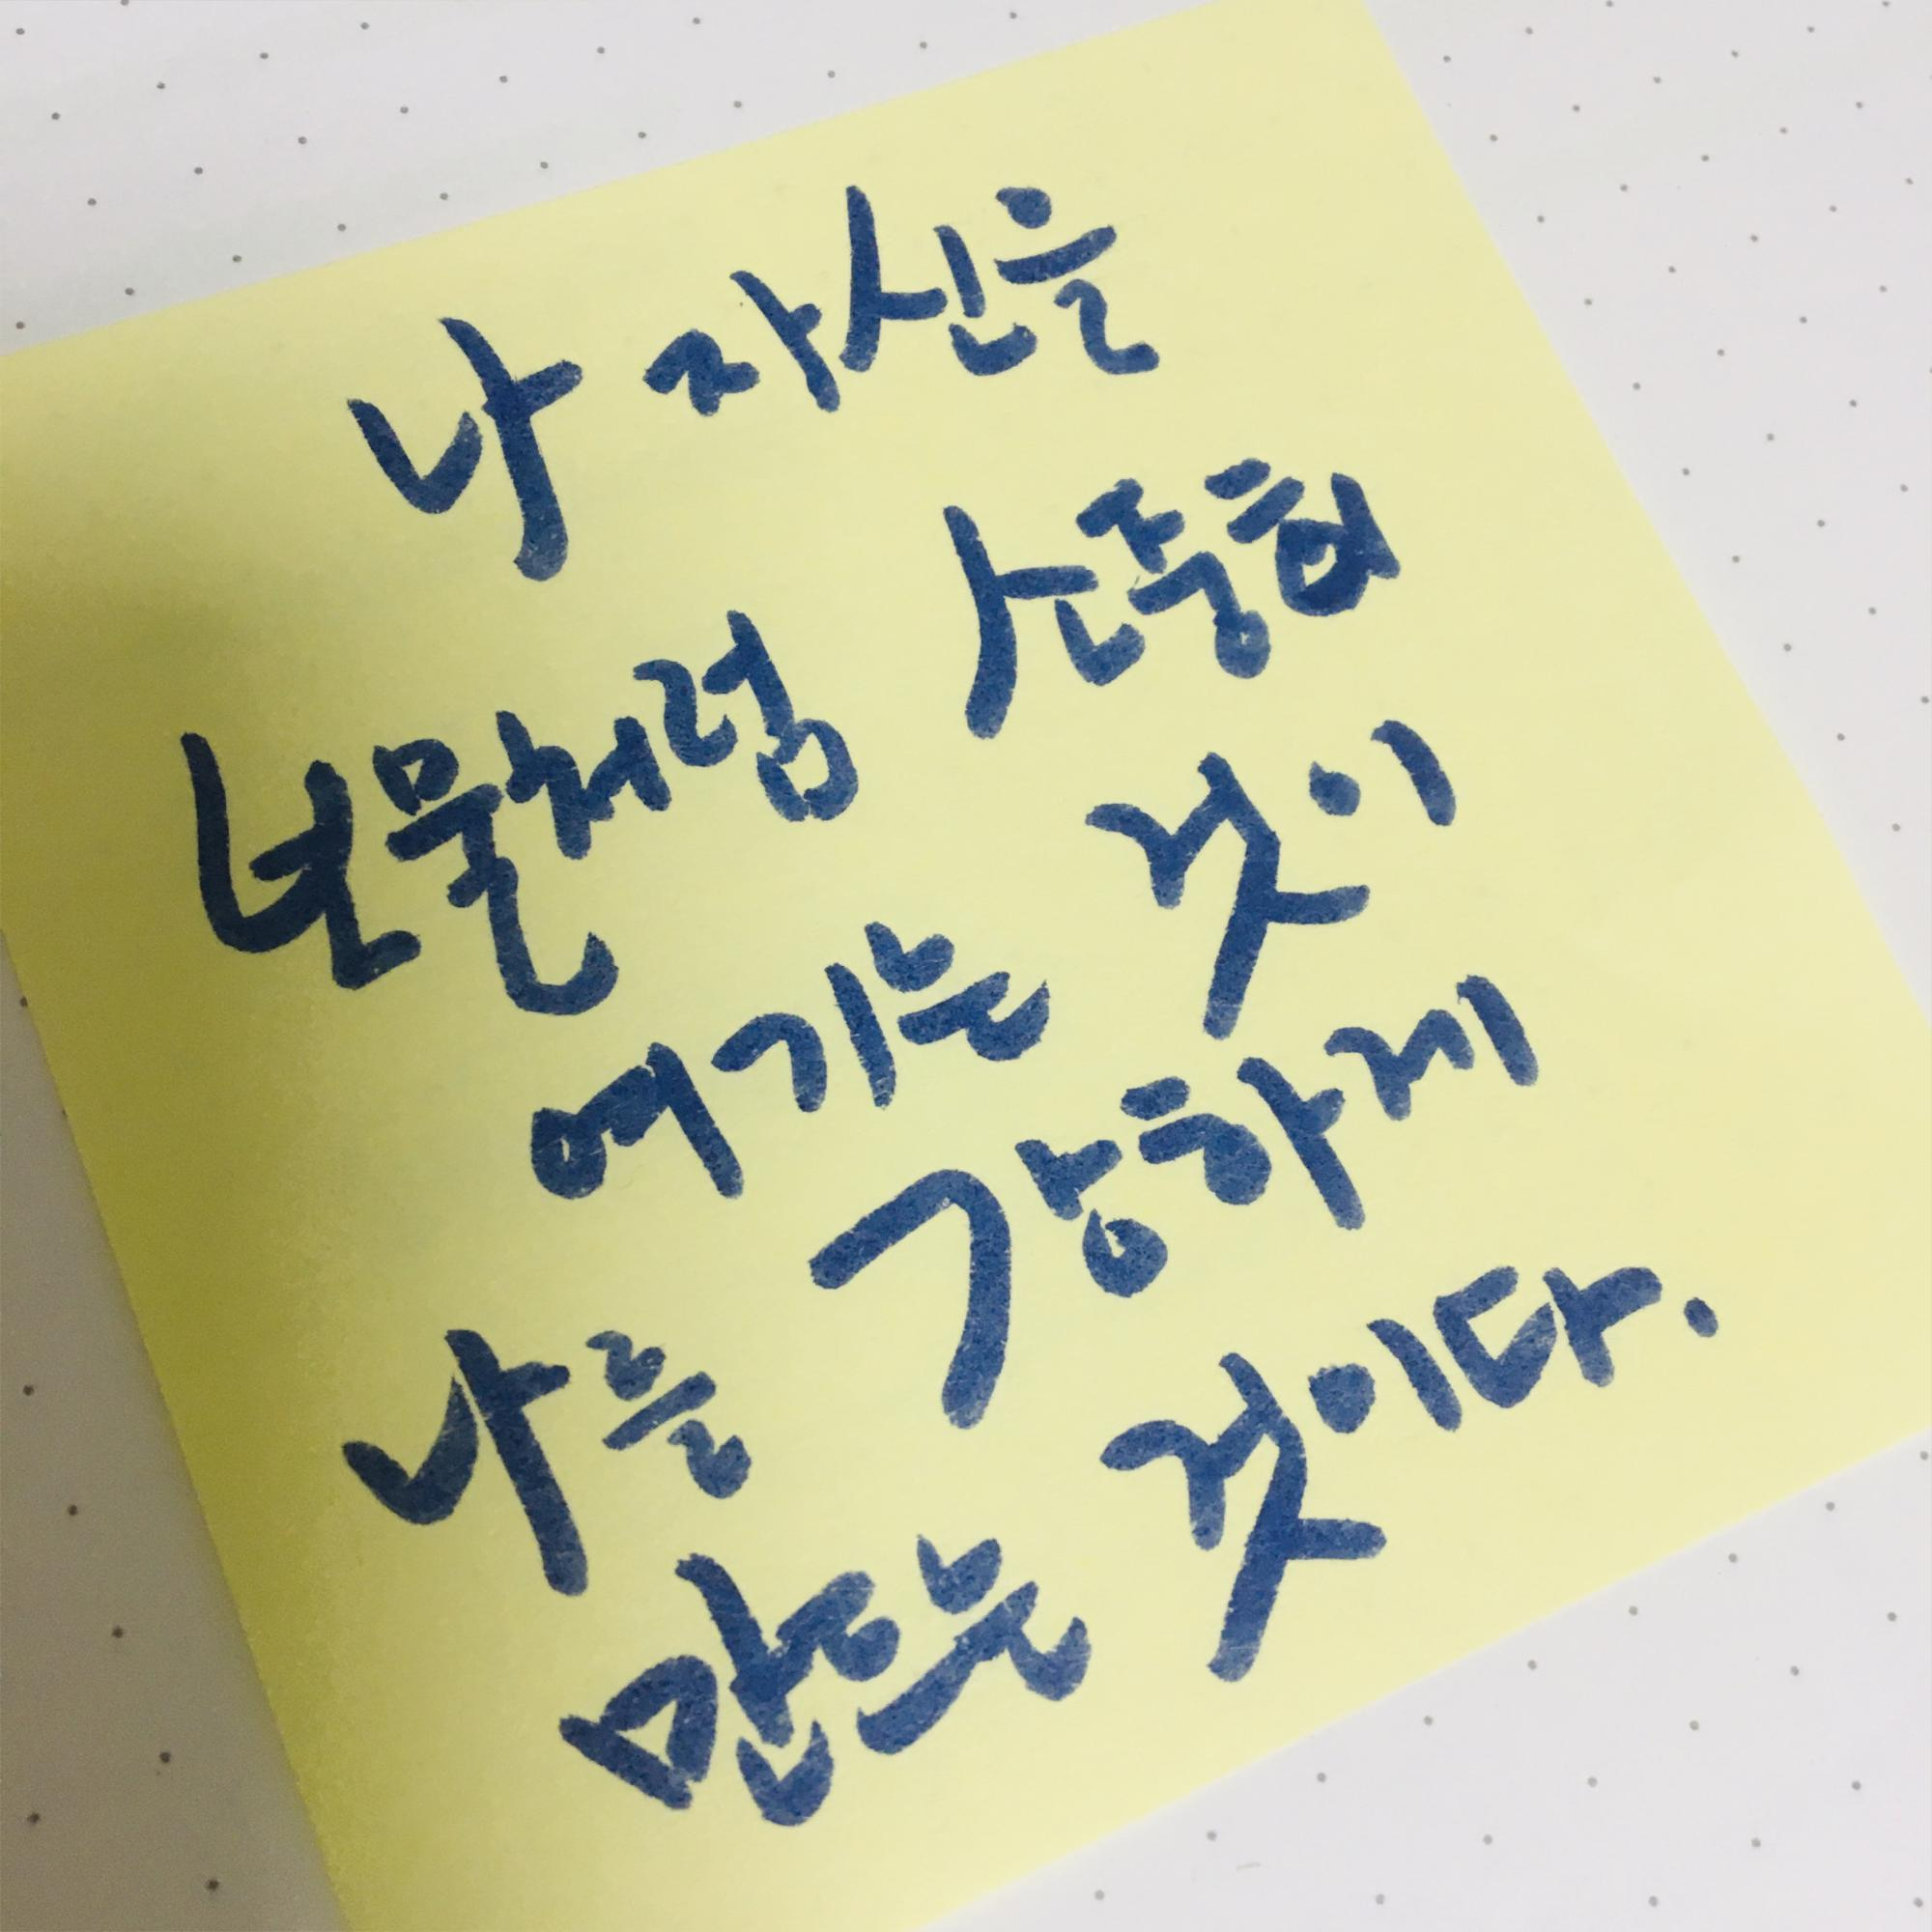 나 자신을
보물처럼 소중히
여기는 것이
나를 강하게
만드는 것이다.